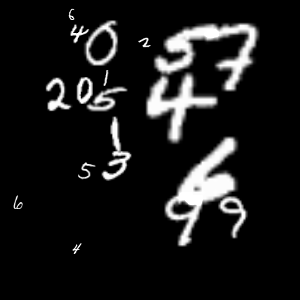 6
4 0 2 5 7
2 0 5 1 4
1
5 3 6
6 9 9
4